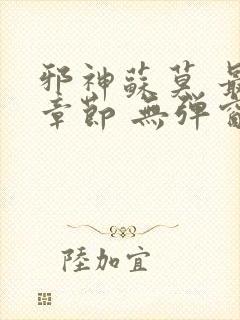 邪神蘇莫 最
章節 無彈窗
陸加宜